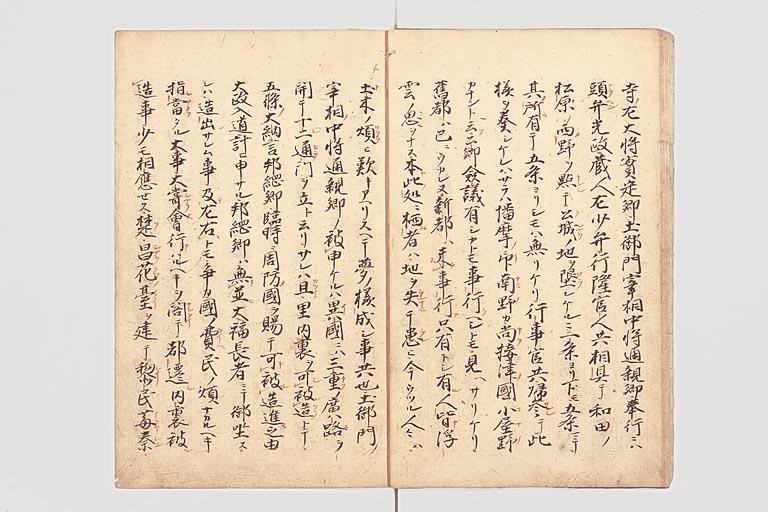 寺左大将實定卿土御門宰相中将通親卿奉行ニハ
頭弁光政蔵人左少弁行隆官人共相具テ和田ノ
松原ノ西野ヲ點テ公城ノ地ヲ
其所有テ五条ヨリシモハ無リケリ行事官共帰参テ此
様ヲ奏シケレハサラハ播摩ノ印南野カ尚接津國小屋野
カナント云云公卿僉議有シカトモ事行ヘシトモ見ヘサリケリ
舊都ハ已ニウカレヌ新都ハ未事行只有トシ有人皆浮
雲ノ思ヲナス本此処ニ栖者ハ地ヲ失テ患ヘ今ウツル人々ハ
土木ノ煩ヲ歎キアヘリスヘテ夢ノ様成シ事共也土御門ノ
宰相中将通親卿ノ被申ケルハ異國ニハ三重ノ廣路ヲ
開テ十二通門ヲ立ト云リサレハ且ハ里内裏ヲ可被造トテ
五條大納言邦綱卿臨時ニ周防國ヲ賜テ可被造進之由
大政入道計ヒ申サル邦綱卿ハ無並大福長者ニテ御坐ス
レハ造出サレム事及左右トモ争カ國費民ノ煩ナカルヘキ
指當タル大事大嘗會行ルヘキヲ閣テ都遷内裏被
造事少モ相應セス楚ニ章花臺ヲ建テ黎民